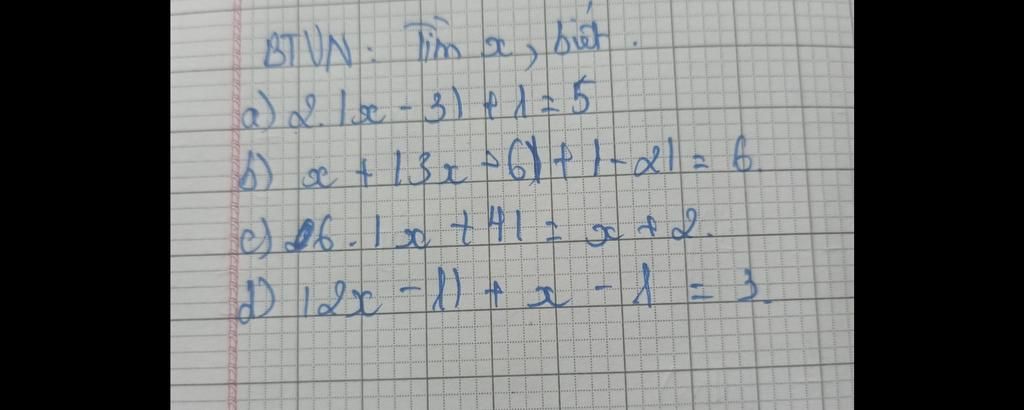 BTVN: Tìm x, biết.
a) 2.|x - 3| + 1 = 5
b) x + |3x - 6| + |-2| = 6.
c) 6.|x + 4| = x + 2.
d) |2x - 1| + x - 1 = 3.